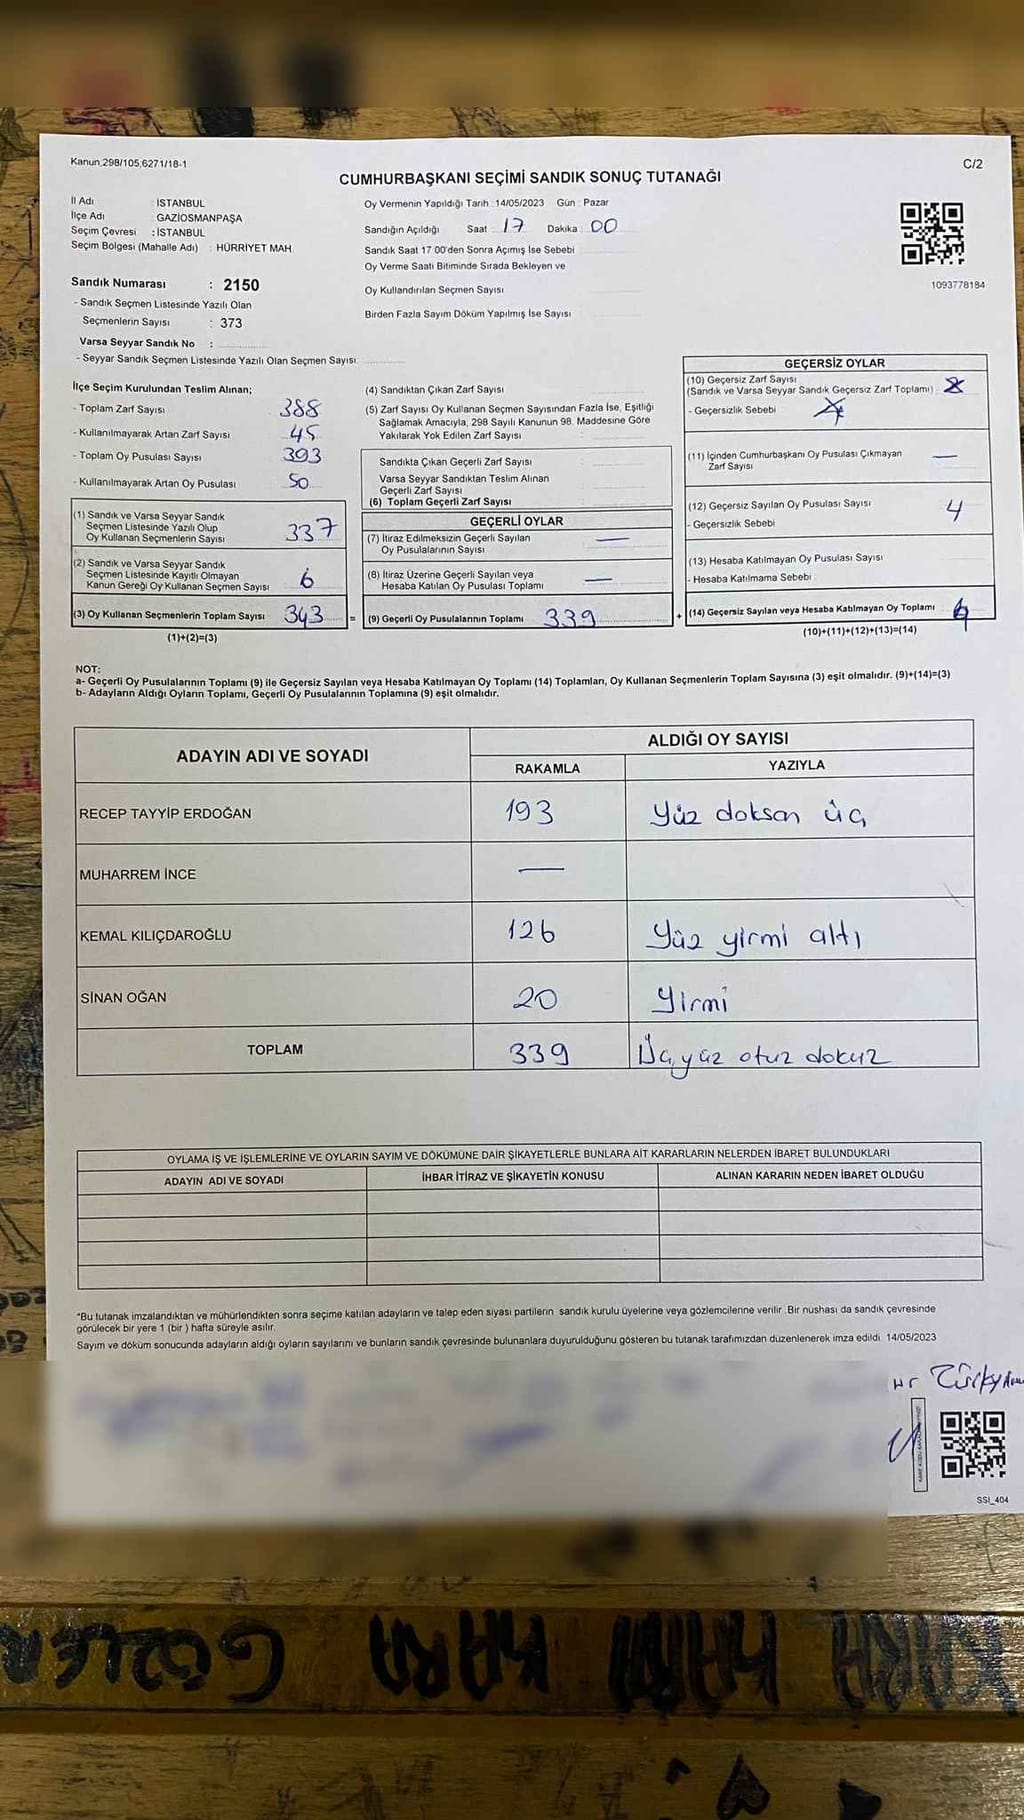 Kanun,298/105,6271/18-1
C/2
CUMHURBAŞKANI SEÇİMİ SANDIK SONUÇ TUTANAĞI
İl Adı İSTANBUL
İlçe Adı GAZİOSMANPAŞA
Seçim Çevresi : İSTANBUL
Seçim Bölgesi (Mahalle Adı) : HÜRRİYET MAH
Sandık Numarası : 2150
- Sandık Seçmen Listesinde Yazılı Olan
Seçmenlerin Sayısı : 373
Varsa Seyyar Sandık No :
- Seyyar Sandık Seçmen Listesinde Yazılı Olan Seçmen Sayısı
Oy Vermenin Yapıldığı Tarih : 14/05/2023 Gün : Pazar
Sandığın Açıldığı Saat : 17 Dakika : 00
Sandık Saat 17.00'den Sonra Açımış İse Sebebi
Oy Verme Saati Bitiminde Sırada Bekleyen ve
Oy Kullandırılan Seçmen Sayısı
Birden Fazla Sayım Döküm Yapılmış İse Sayısı
1093778184
İlçe Seçim Kurulundan Teslim Alınan;
- Toplam Zarf Sayısı 388
- Kullanılmayarak Artan Zarf Sayısı 45
- Toplam Oy Pusulası Sayısı 393
- Kullanılmayarak Artan Oy Pusulası 50
(1) Sandık ve Varsa Seyyar Sandık
Seçmen Listesinde Yazılı Olup
Oy Kullanan Seçmenlerin Sayısı 337
(2) Sandık ve Varsa Seyyar Sandık
Seçmen Listesinde Kayıtlı Olmayan
Kanun Gereği Oy Kullanan Seçmen Sayısı 6
(3) Oy Kullanan Seçmenlerin Toplam Sayısı 343 =
(1)+(2)=(3)
(4) Sandıktan Çıkan Zarf Sayısı
(5) Zarf Sayısı Oy Kullanan Seçmen Sayısından Fazla İse, Eşitliği
Sağlamak Amacıyla, 298 Sayılı Kanunun 98. Maddesine Göre
Yakılarak Yok Edilen Zarf Sayısı :
Sandıkta Çıkan Geçerli Zarf Sayısı
Varsa Seyyar Sandıktan Teslim Alınan
Geçerli Zarf Sayısı
(6) Toplam Geçerli Zarf Sayısı
GEÇERLİ OYLAR
(7) İtiraz Edilmeksizin Geçerli Sayılan —
Oy Pusulalarının Sayısı
(8) İtiraz Üzerine Geçerli Sayılan veya —
Hesaba Katılan Oy Pusulası Toplamı
(9) Geçerli Oy Pusulalarının Toplamı 339 +
GEÇERSİZ OYLAR
(10) Geçersiz Zarf Sayısı
(Sandık ve Varsa Seyyar Sandık Geçersiz Zarf Toplamı)
- Geçersizlik Sebebi
(11) İçinden Cumhurbaşkanı Oy Pusulası Çıkmayan —
Zarf Sayısı
(12) Geçersiz Sayılan Oy Pusulası Sayısı 4
- Geçersizlik Sebebi
(13) Hesaba Katılmayan Oy Pusulası Sayısı
- Hesaba Katılmama Sebebi
(14) Geçersiz Sayılan veya Hesaba Katılmayan Oy Toplamı
(10)+(11)+(12)+(13)=(14)
NOT:
a- Geçerli Oy Pusulalarının Toplamı (9) ile Geçersiz Sayılan veya Hesaba Katılmayan Oy Toplamı (14) Toplamları, Oy Kullanan Seçmenlerin Toplam Sayısına (3) eşit olmalıdır. (9)+(14)=(3)
b- Adayların Aldığı Oyların Toplamı, Geçerli Oy Pusulalarının Toplamına (9) eşit olmalıdır.
ADAYIN ADI VE SOYADI ALDIĞI OY SAYISI
RAKAMLA YAZIYLA
RECEP TAYYİP ERDOĞAN 193 Yüz doksan üç
MUHARREM İNCE —
KEMAL KILIÇDAROĞLU 126 Yüz yirmi altı
SİNAN OĞAN 20 Yirmi
TOPLAM 339 Üçyüz otuz dokuz
OYLAMA İŞ VE İŞLEMLERİNE VE OYLARIN SAYIM VE DÖKÜMÜNE DAİR ŞİKAYETLERLE BUNLARA AİT KARARLARIN NELERDEN İBARET BULUNDUKLARI
ADAYIN ADI VE SOYADI İHBAR İTİRAZ VE ŞİKAYETİN KONUSU ALINAN KARARIN NEDEN İBARET OLDUĞU
*Bu tutanak imzalandıktan ve mühürlendikten sonra seçime katılan adayların ve talep eden siyasi partilerin sandık kurulu üyelerine veya gözlemcilerine verilir. Bir nushası da sandık çevresinde
görülecek bir yere 1 (bir) hafta süreyle asılır.
Sayım ve döküm sonucunda adayların aldığı oyların sayılarını ve bunların sandık çevresinde bulunanlara duyurulduğunu gösteren bu tutanak tarafımızdan düzenlenerek imza edildi. 14/05/2023
SSI_404